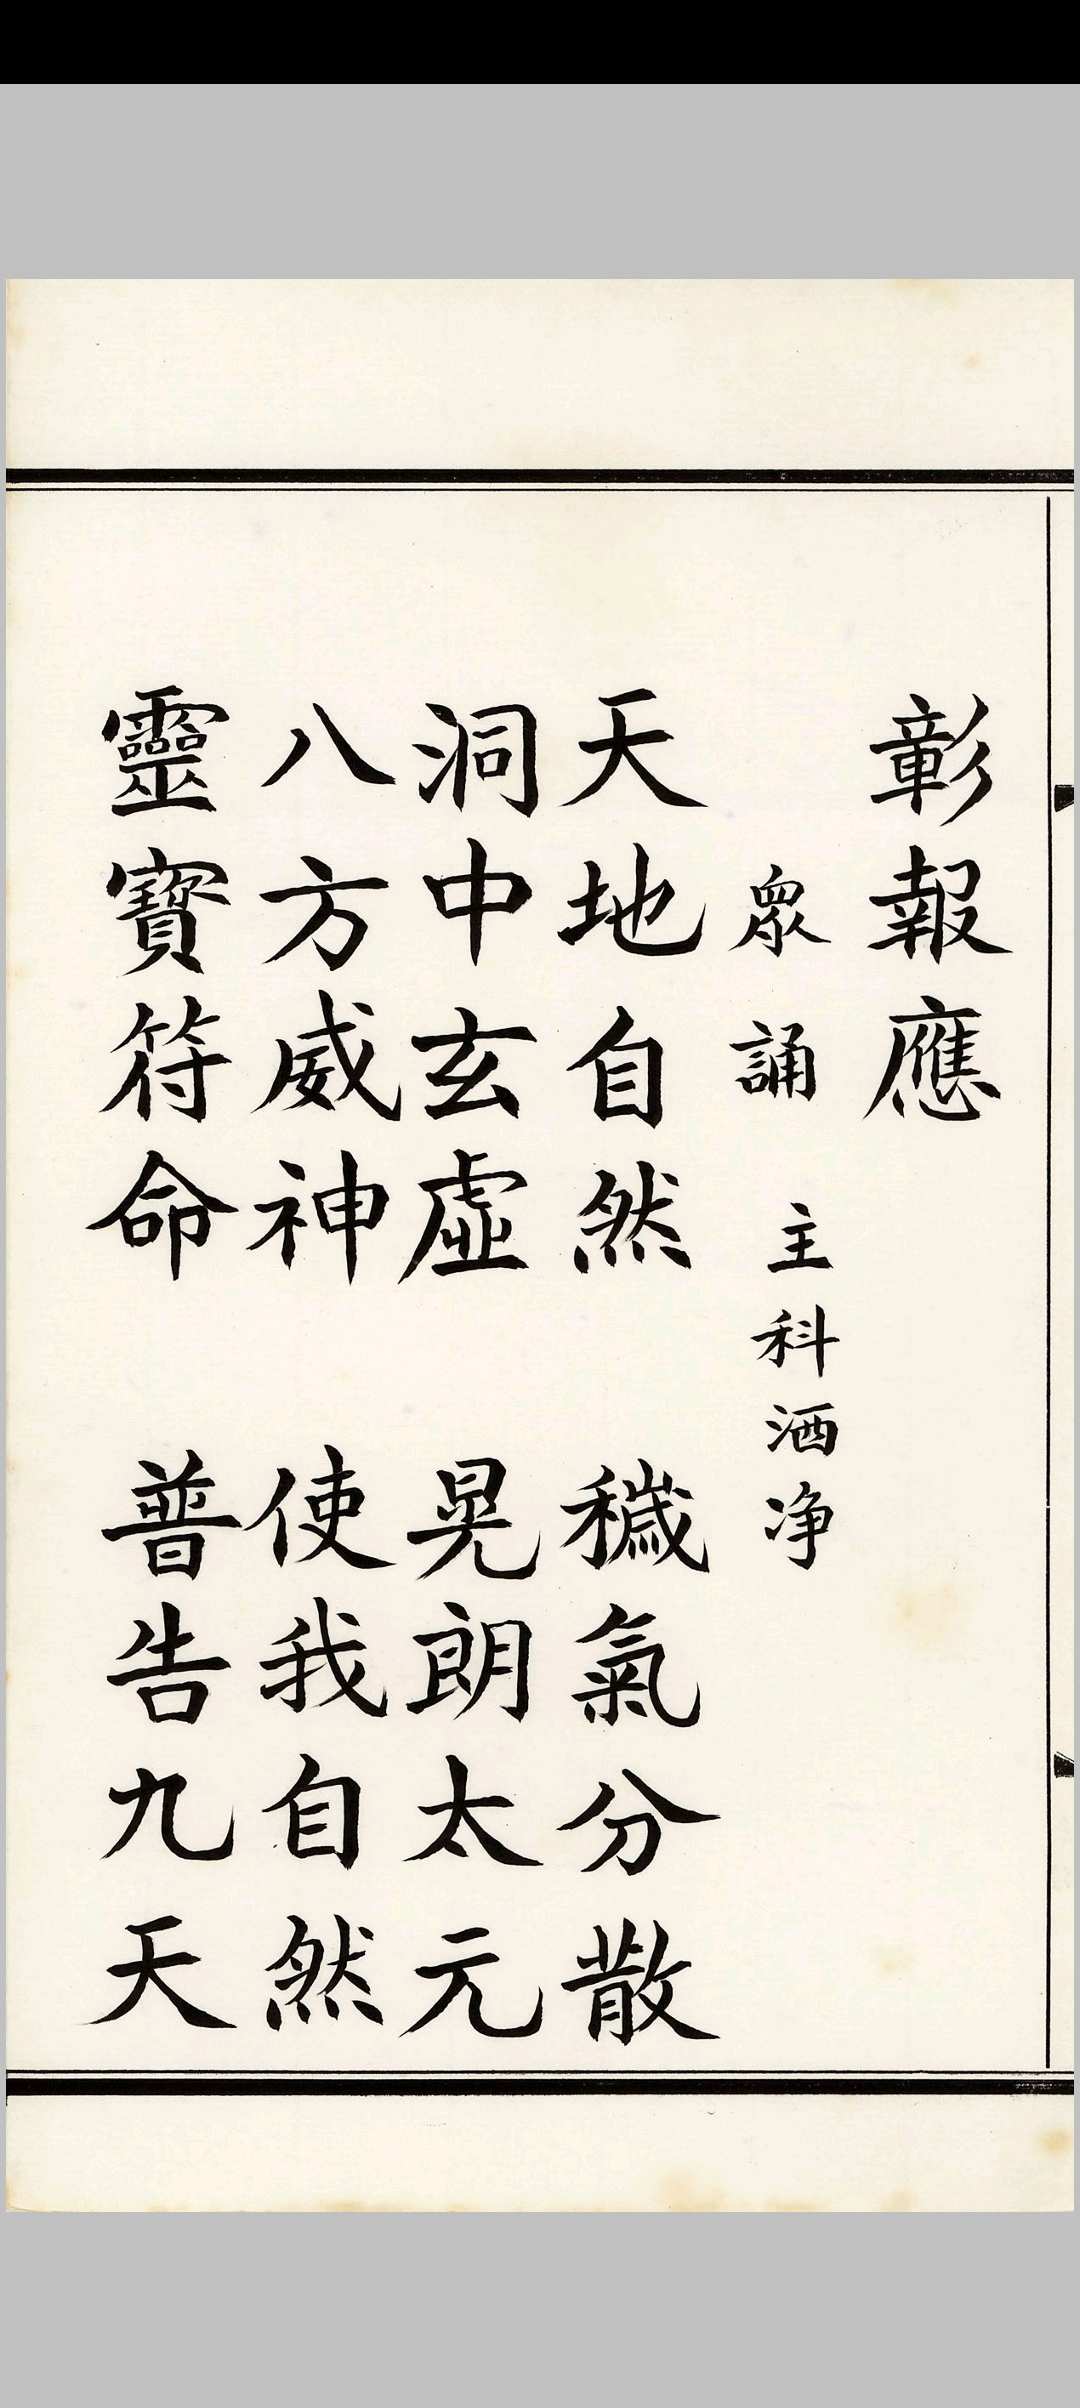 彰報應
眾誦 主科洒净
天地自然 穢氣分散
洞中玄虛 晃朗太元
八方威神 使我自然
靈寶符命 普告九天